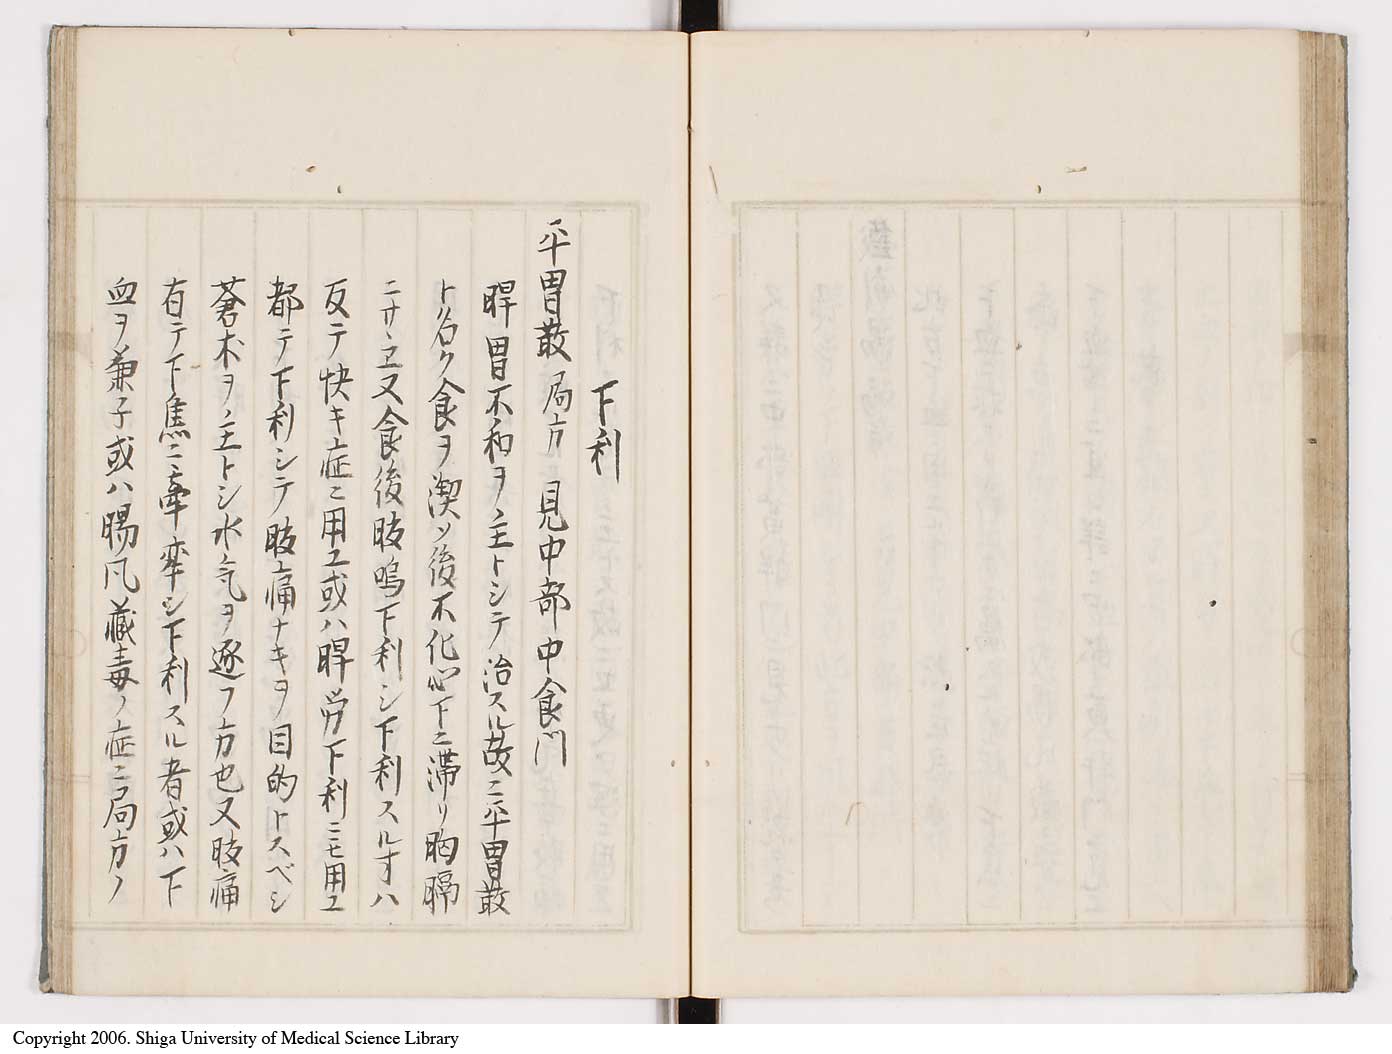 下利
平胃散 局方 見中部中食門
脾胃不和ヲ主トシテ治スル故ニ平胃散
ト名ク食ヲ喫ソ後不化心下ニ滞リ胸膈
ニサヽヱ又食後肢鳴下利シ下利スルオハ
反テ快キ症ニ用ユ或ハ脾労下利ニモ用ユ
都テ下利シテ肢痛ナキヲ目的トスベシ
蒼朮ヲ主トシ水気ヲ逐フ方也又肢痛
有テ下焦ニ牽牽シ下利スル者或ハ下
血ヲ兼子或ハ腸風蔵毒ノ症ニ局方ノ
Copyright 2006. Shiga University of Medical Science Library